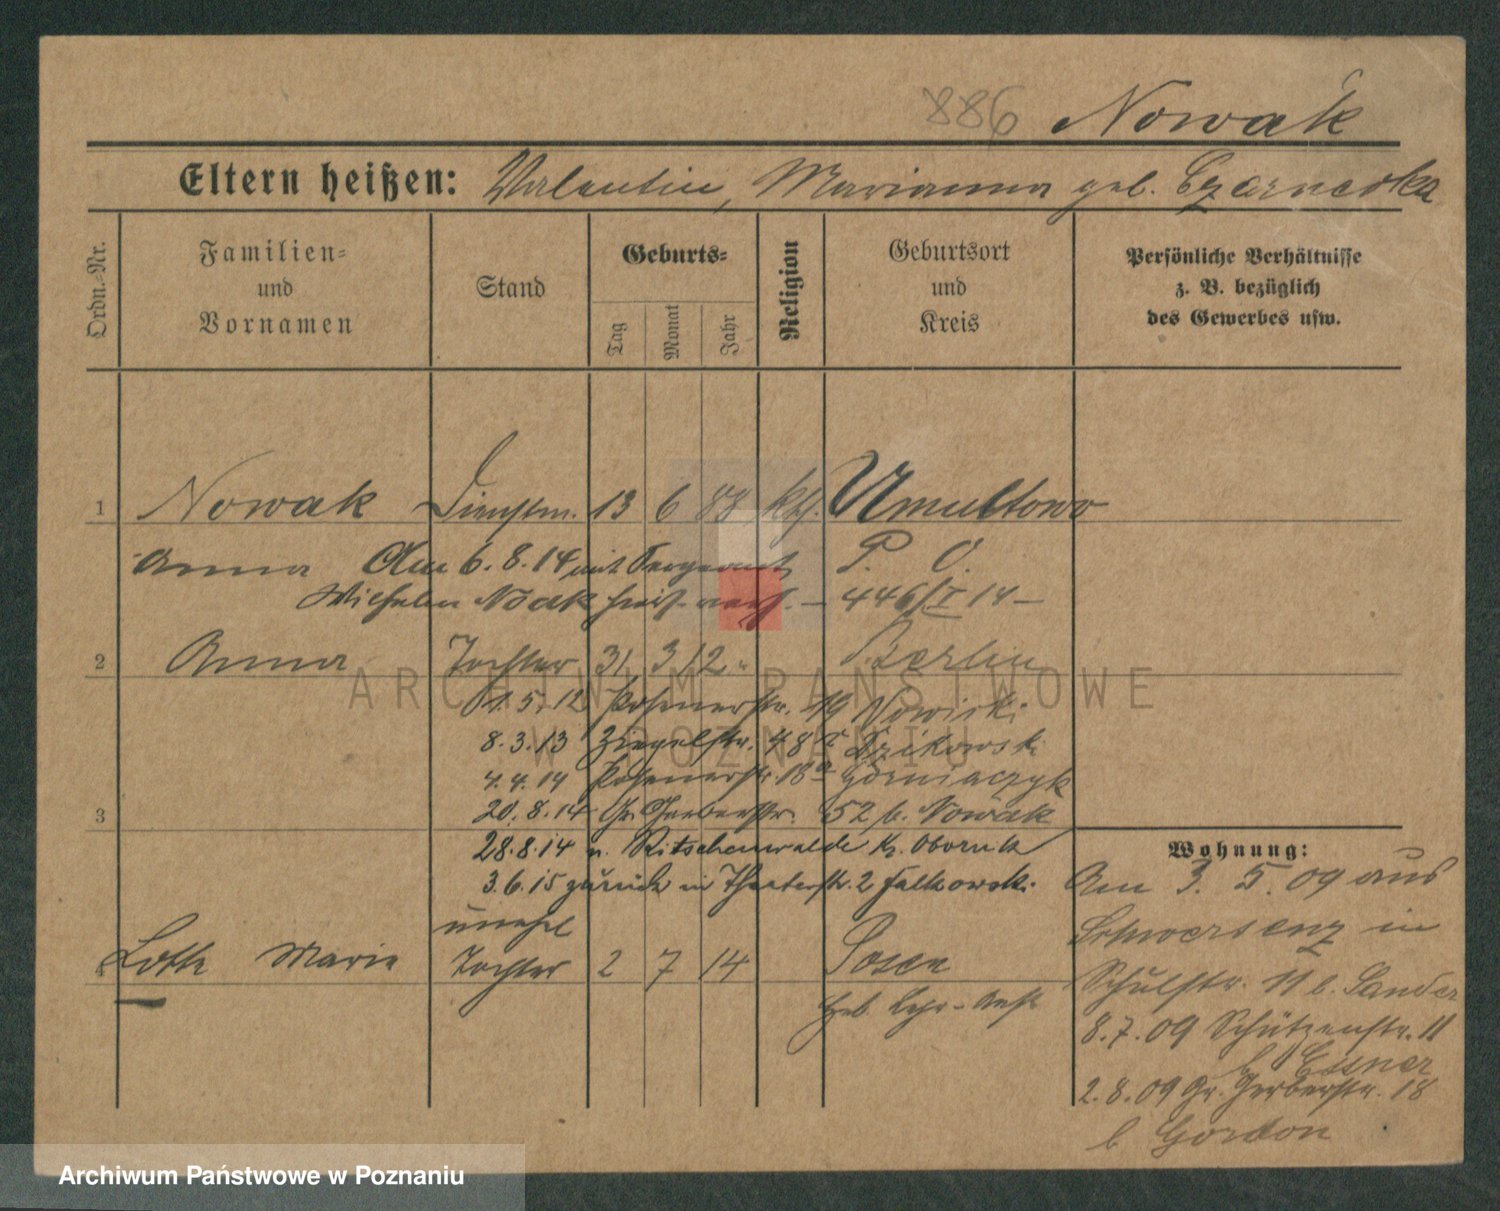 886 Nowak
Eltern heißen: Valentin, Marianna geb. Czarnecka
Ordn.-Nr.
Familien-
und
Vornamen
Stand
Geburts-
Tag
Monat
Jahr
Religion
Geburtsort
und
Kreis
Persönliche Verhältnisse
z. B. bezüglich
des Gewerbes usw.
1 Nowak Dienstm. 13 6 88 kth. Umultowo
Anna Am 6.8.14 mit Sergeant P. O.
Wilhelm Noak hier verh. — 446/I 14 —
2 Anna Tochter 31 3 12 " Berlin
1.5.12 Posenerstr. 19 Nowicki
8.3.13 Ziegelstr. 48 Dzikowski
4.4.14 Posenerstr. 18a Górniaczyk
3 20.8.14 Gr. Gerberstr. 52 b. Nowak
28.8.14 n. Ritschenwalde Kr. Obornik
3.6.15 zurück in Theaterstr. 2 Falkowski.
unehel
4 Loth Marie Tochter 2 7 14 Posen
Heb. Lehr-Anst
Wohnung:
Am 3. 5. 09 aus
Schwersenz in
Schulstr. 11 b. Sander
8.7.09 Schützenstr. 11
b Eisner
2.8.09 Gr. Gerberstr. 18
b Gordon
ARCHIWUM PAŃSTWOWE
W POZNANIU
Archiwum Państwowe w Poznaniu